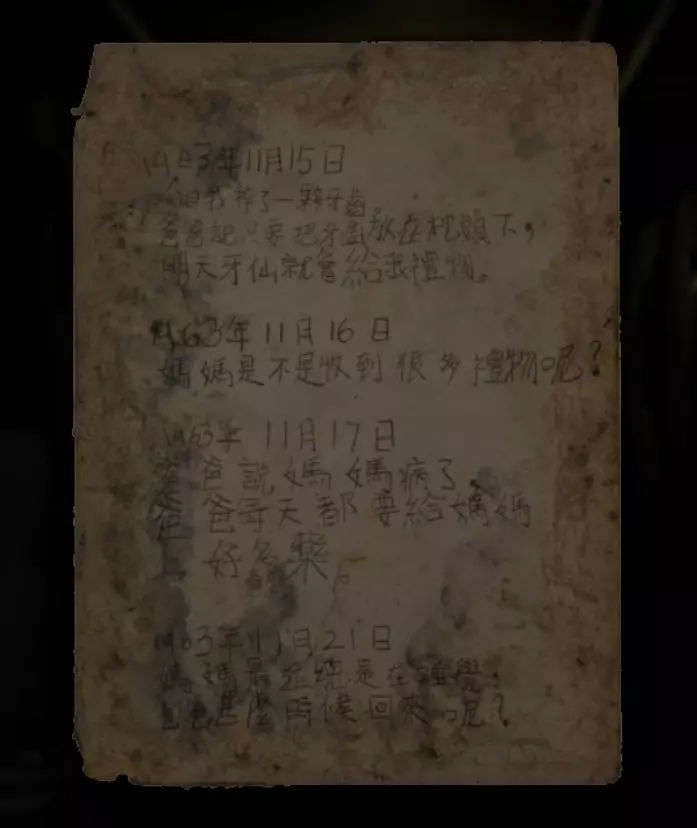 1963年11月15日
今日我掉了一顆牙齒。
爸爸說只要把牙齒放在枕頭下,
明天牙仙就會給我禮物。
1963年11月16日
媽媽是不是收到很多禮物呢?
1963年11月17日
爸爸說媽媽病了,
爸爸每天都要給媽媽
好多藥
1963年11月21日
媽媽最近總是在睡覺。
爸爸甚麼時候回來呢?